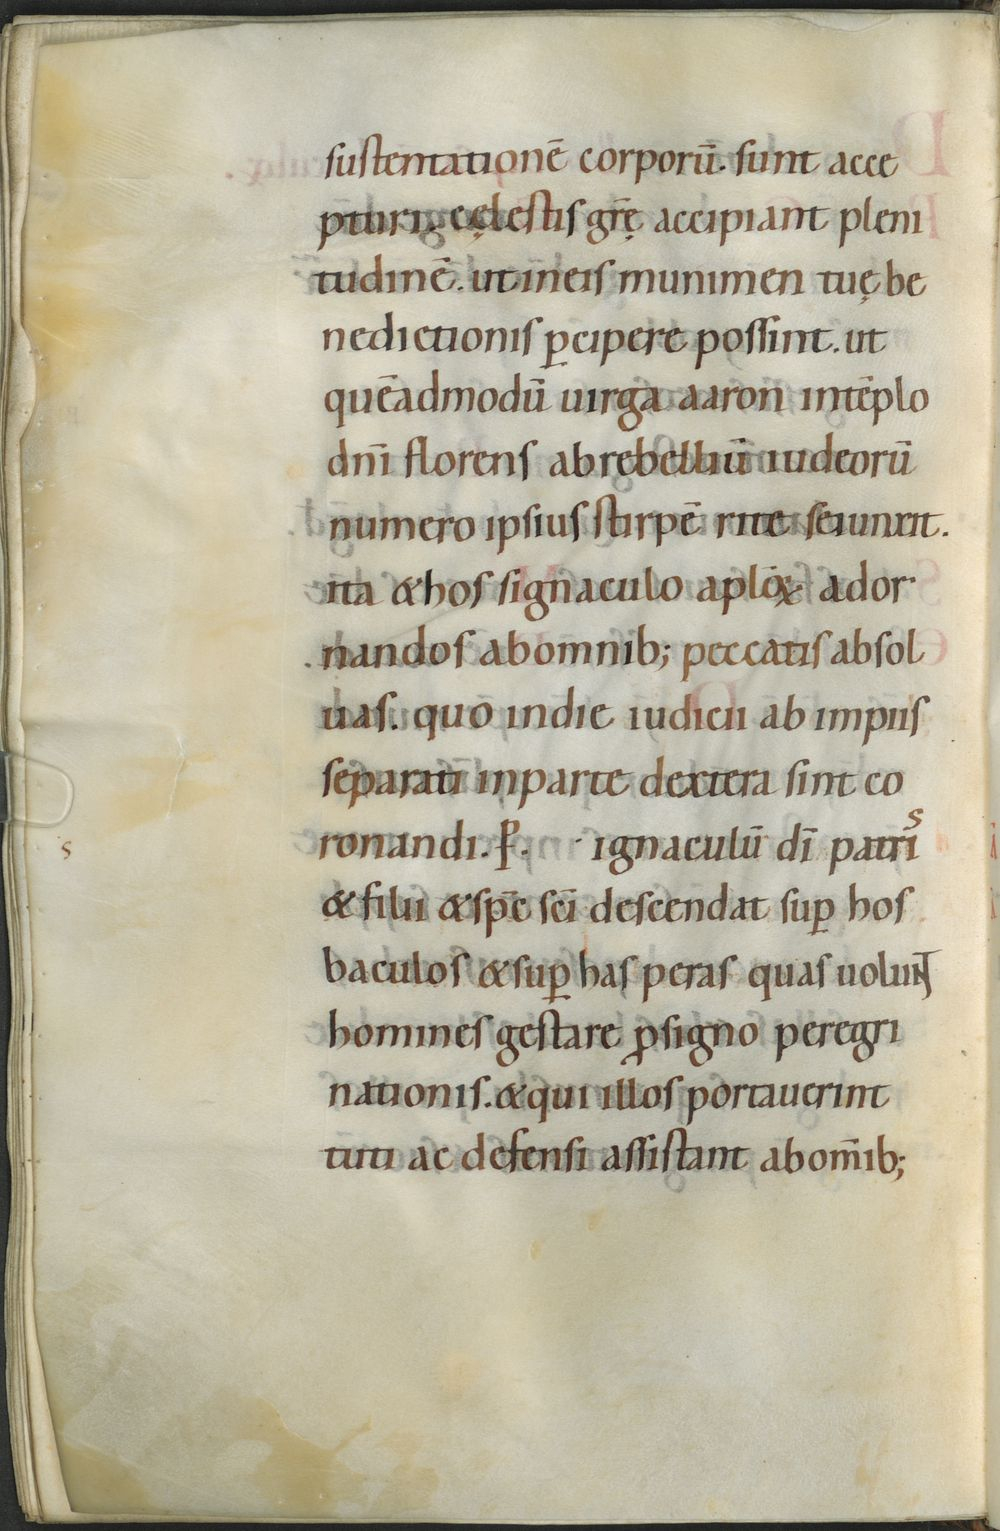 sustentationē corporū. sunt acce
pturi. cęlestis grę̄ accipiant pleni
tudinē. ut in eis munimen tuę be
nedictionis ꝑcipere possint. ut
quēadmodū uirga aaron in tēplo
dn̄i florens ab rebelliū iudeorū
numero ipsius stirpē rite seiunxit.
ita & hos signaculo aplōꝝ ador
nandos ab omnib; peccatis absol
uas. quo in die iudicii ab impiis
separati in parte dextera sint co
ronandi. P̶. ignaculū dī patris
s
& filii & spē sc̄i descendat suꝑ hos
baculos & suꝑ has peras quas uolunt
homines gestare ꝓ signo peregri
nationis. & qui illos portauerint
tuti ac defensi assistant ab om̄ib;